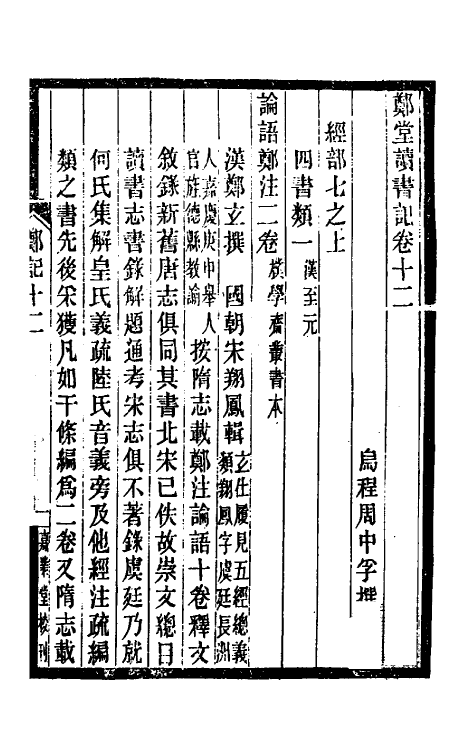 鄭堂讀書記卷十二
烏程周中孚撰
經部七之上
四書類一 漢至元
論語鄭注二卷 樸學齋叢書本
漢鄭玄撰 國朝宋翔鳳輯 玄仕履見五經總義類翔鳳字虞廷長洲
人嘉慶庚申舉人官旌德縣教諭 按隋志載鄭注論語十卷釋文
敘錄新舊唐志俱同其書北宋已佚故崇文總目
讀書志書錄解題通考宋志俱不著錄虞廷乃就
何氏集解皇氏義疏陸氏音義旁及他經注疏編
類之書先後采獲凡如干條編爲二卷又隋志載
鄭記十二
一
嘉業堂校刊